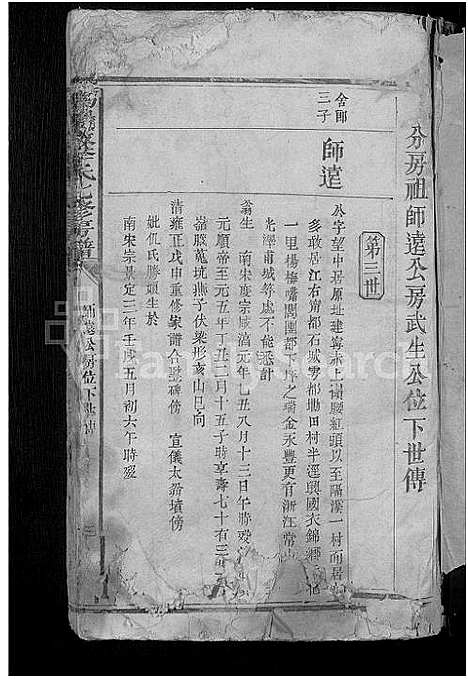 分房祖師遠公房武生公位下世傳
第三世
舍郎
三子
師遠
公字望中居原址建寧赤上嶺腰紅頭以至隔溪一村而居
多散居江右甯都石城雩都坳田村半逕興國衣錦鄉
一里楊梅嘯閩團都下坪之瑞金永豐更有浙江常山
光澤甫城等處不能悉計
翁生 南宋度宗咸淳元年乙丑八月十三日午時歿
元順帝至元五年丁丑三月十五子時享壽七十有三
嶺腰蒐坑燕子伏梁形亥山巳向
清雍正戊申重修家譜合塟碑傍 宣儀太爺墳傍
妣仉氏勝娘生於
南宋宗景定三年壬戌五月初六午時歿
氏七修房譜
師遠公房位下世傳
FamilySearch